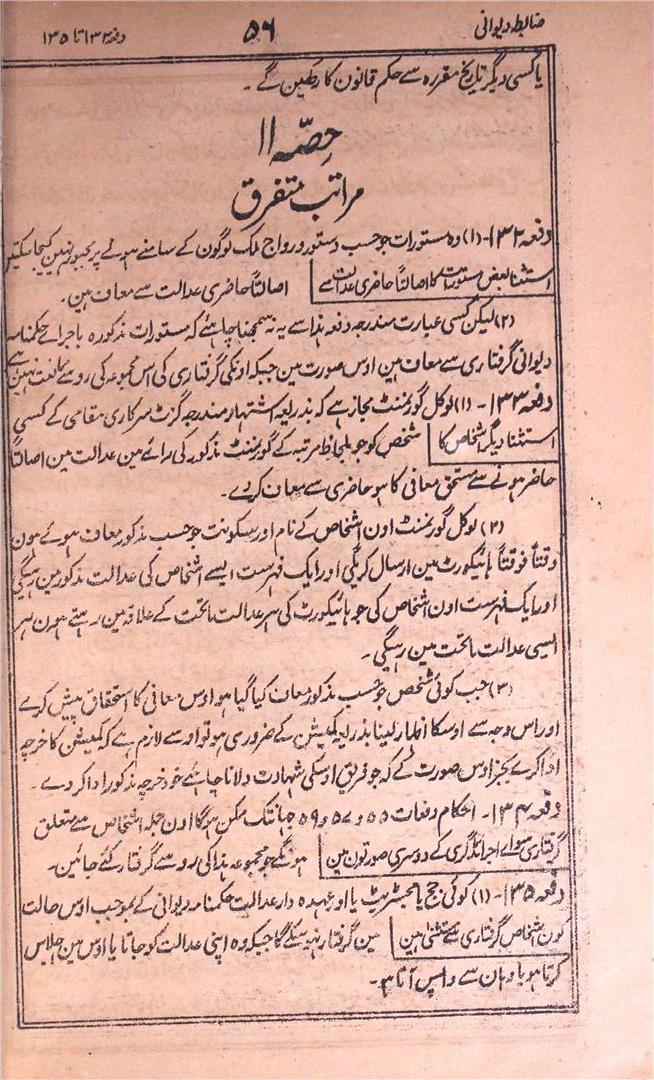 ضابطہ دیوانی ۵۶ دفعہ ۱۳۲ تا ۱۳۵
یا کسی دیگر تاریخ مقررہ سے حکم قانون کا رکھین گے۔
حِصّہ ۱۱
مراتب متفرق
دفعہ ۱۳۲۔ (۱) وہ مستورات جو حسب دستور و رواج ملک لوگون کے سامنے ہونے پر مجبور نہین کیجا سکتین
استثنا بعض مستورات کا اصالتاً حاضری عدالت سے
اصالتاً حاضری عدالت سے معاف ہین۔
(۲) لیکن کسی عبارت مندرجہ دفعہ ہذا سے یہ نہ سمجھنا چاہئے کہ مستورات مذکورہ باجراے حکمنامہ
دیوانی گرفتاری سے معاف ہین اوس صورت مین جبکہ اونکی گرفتاری کی اس مجموعہ کی رو سے ممانعت نہین ہے
دفعہ ۱۳۳۔ (۱) لوکل گورنمنٹ مجاز ہے کہ بذریعہ اشتہار مندرجہ گزٹ سرکاری مقامی کے کسی
استثنا دیگر اشخاص کا
شخص کو جو بلحاظ مرتبہ کے گورنمنٹ مذکور کی راے مین عدالت مین اصالتاً
حاضر ہونے سے مستحق معافی کا ہو حاضری سے معاف کر دے۔
(۲) لوکل گورنمنٹ اون اشخاص کے نام اور سکونت جو حسب مذکور معاف ہوئے ہون
وقتاً فوقتاً ہائیکورٹ مین ارسال کریگی اور ایک فہرست ایسے اشخاص کی عدالت مذکور مین رہیگی
اور ایک فہرست اون اشخاص کی جو ہائیکورٹ کی ہر عدالت ماتحت کے علاقہ مین رہتے ہون ہر
ایسی عدالت ماتحت مین رہیگی۔
(۳) جب کوئی شخص جو حسب مذکور معاف کیا گیا ہو اوس معافی کا استحقاق پیش کرے
اور اس وجہ سے اوسکا اظہار لینا بذریعہ کمیشن کے ضروری ہو تو اوسے لازم ہے کہ کمیشن کا خرچہ
ادا کرے بجز اوس صورت کے کہ جو فریق اوسکی شہادت دلانا چاہے خود خرچہ مذکور ادا کر دے۔
دفعہ ۱۳۴۔ احکام دفعات ۵۵ و ۵۷ و ۵۹ جہانتک ممکن ہوگا اون جملہ اشخاص سے متعلق
گرفتاری سواے اجراے ڈگری کے دوسری صورتون مین
ہونگے جو مجموعہ ہذا کی رو سے گرفتار کئے جائین۔
دفعہ ۱۳۵۔ (۱) کوئی جج یا مجسٹریٹ یا اور عہدہ دار عدالت حکمنامہ دیوانی کے بموجب اوس حالت
کون اشخاص گرفتاری سے مستثنیٰ ہین
مین گرفتار نہو سکے گا جبکہ وہ اپنی عدالت کو جاتا یا اوس مین اجلاس
کرتا ہو یا وہان سے واپس آتا ہو۔